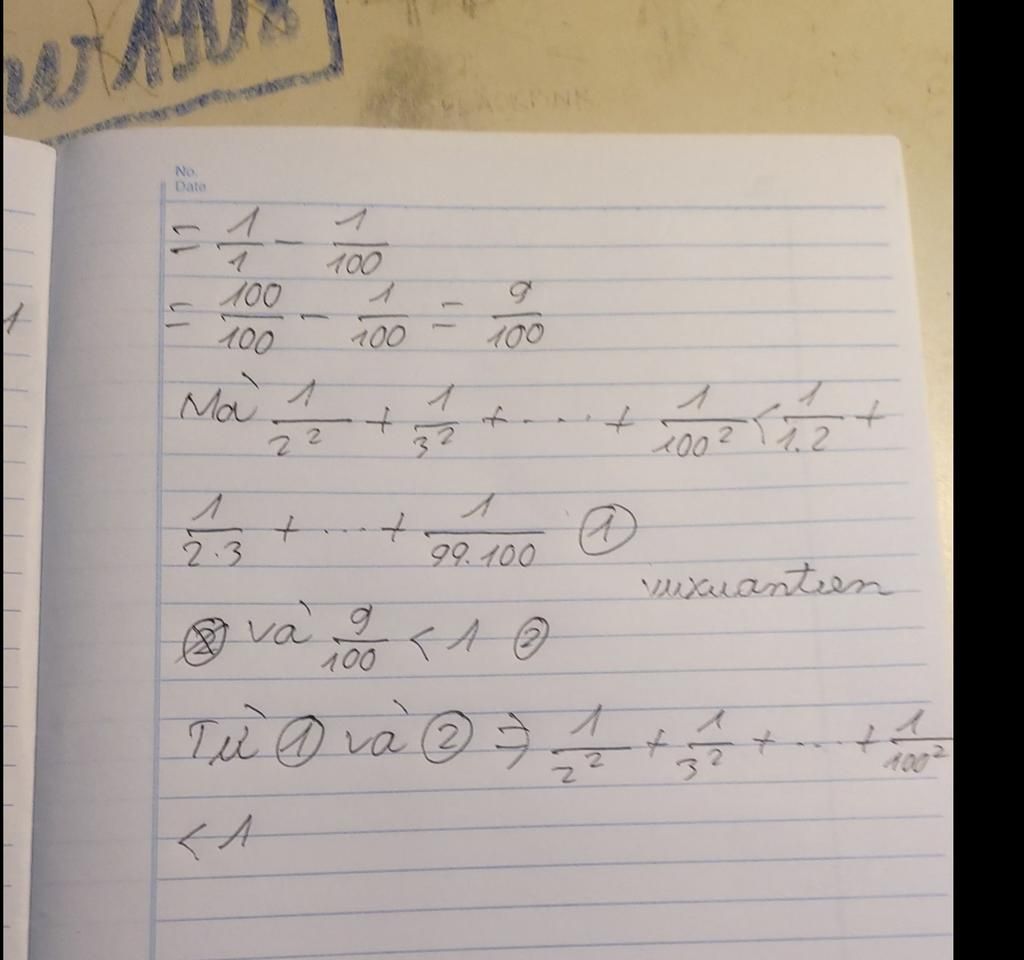 w 1908
BLACKPINK
No.
Date
= 1/1 - 1/100
1
= 100/100 - 1/100 = 9/100
Mà 1/2² + 1/3² + ... + 1/100² < 1/1.2 +
1/2.3 + ... + 1/99.100 ①
vuxuantien
② và 9/100 < 1 ②
Từ ① và ② => 1/2² + 1/3² + ... + 1/100²
< 1